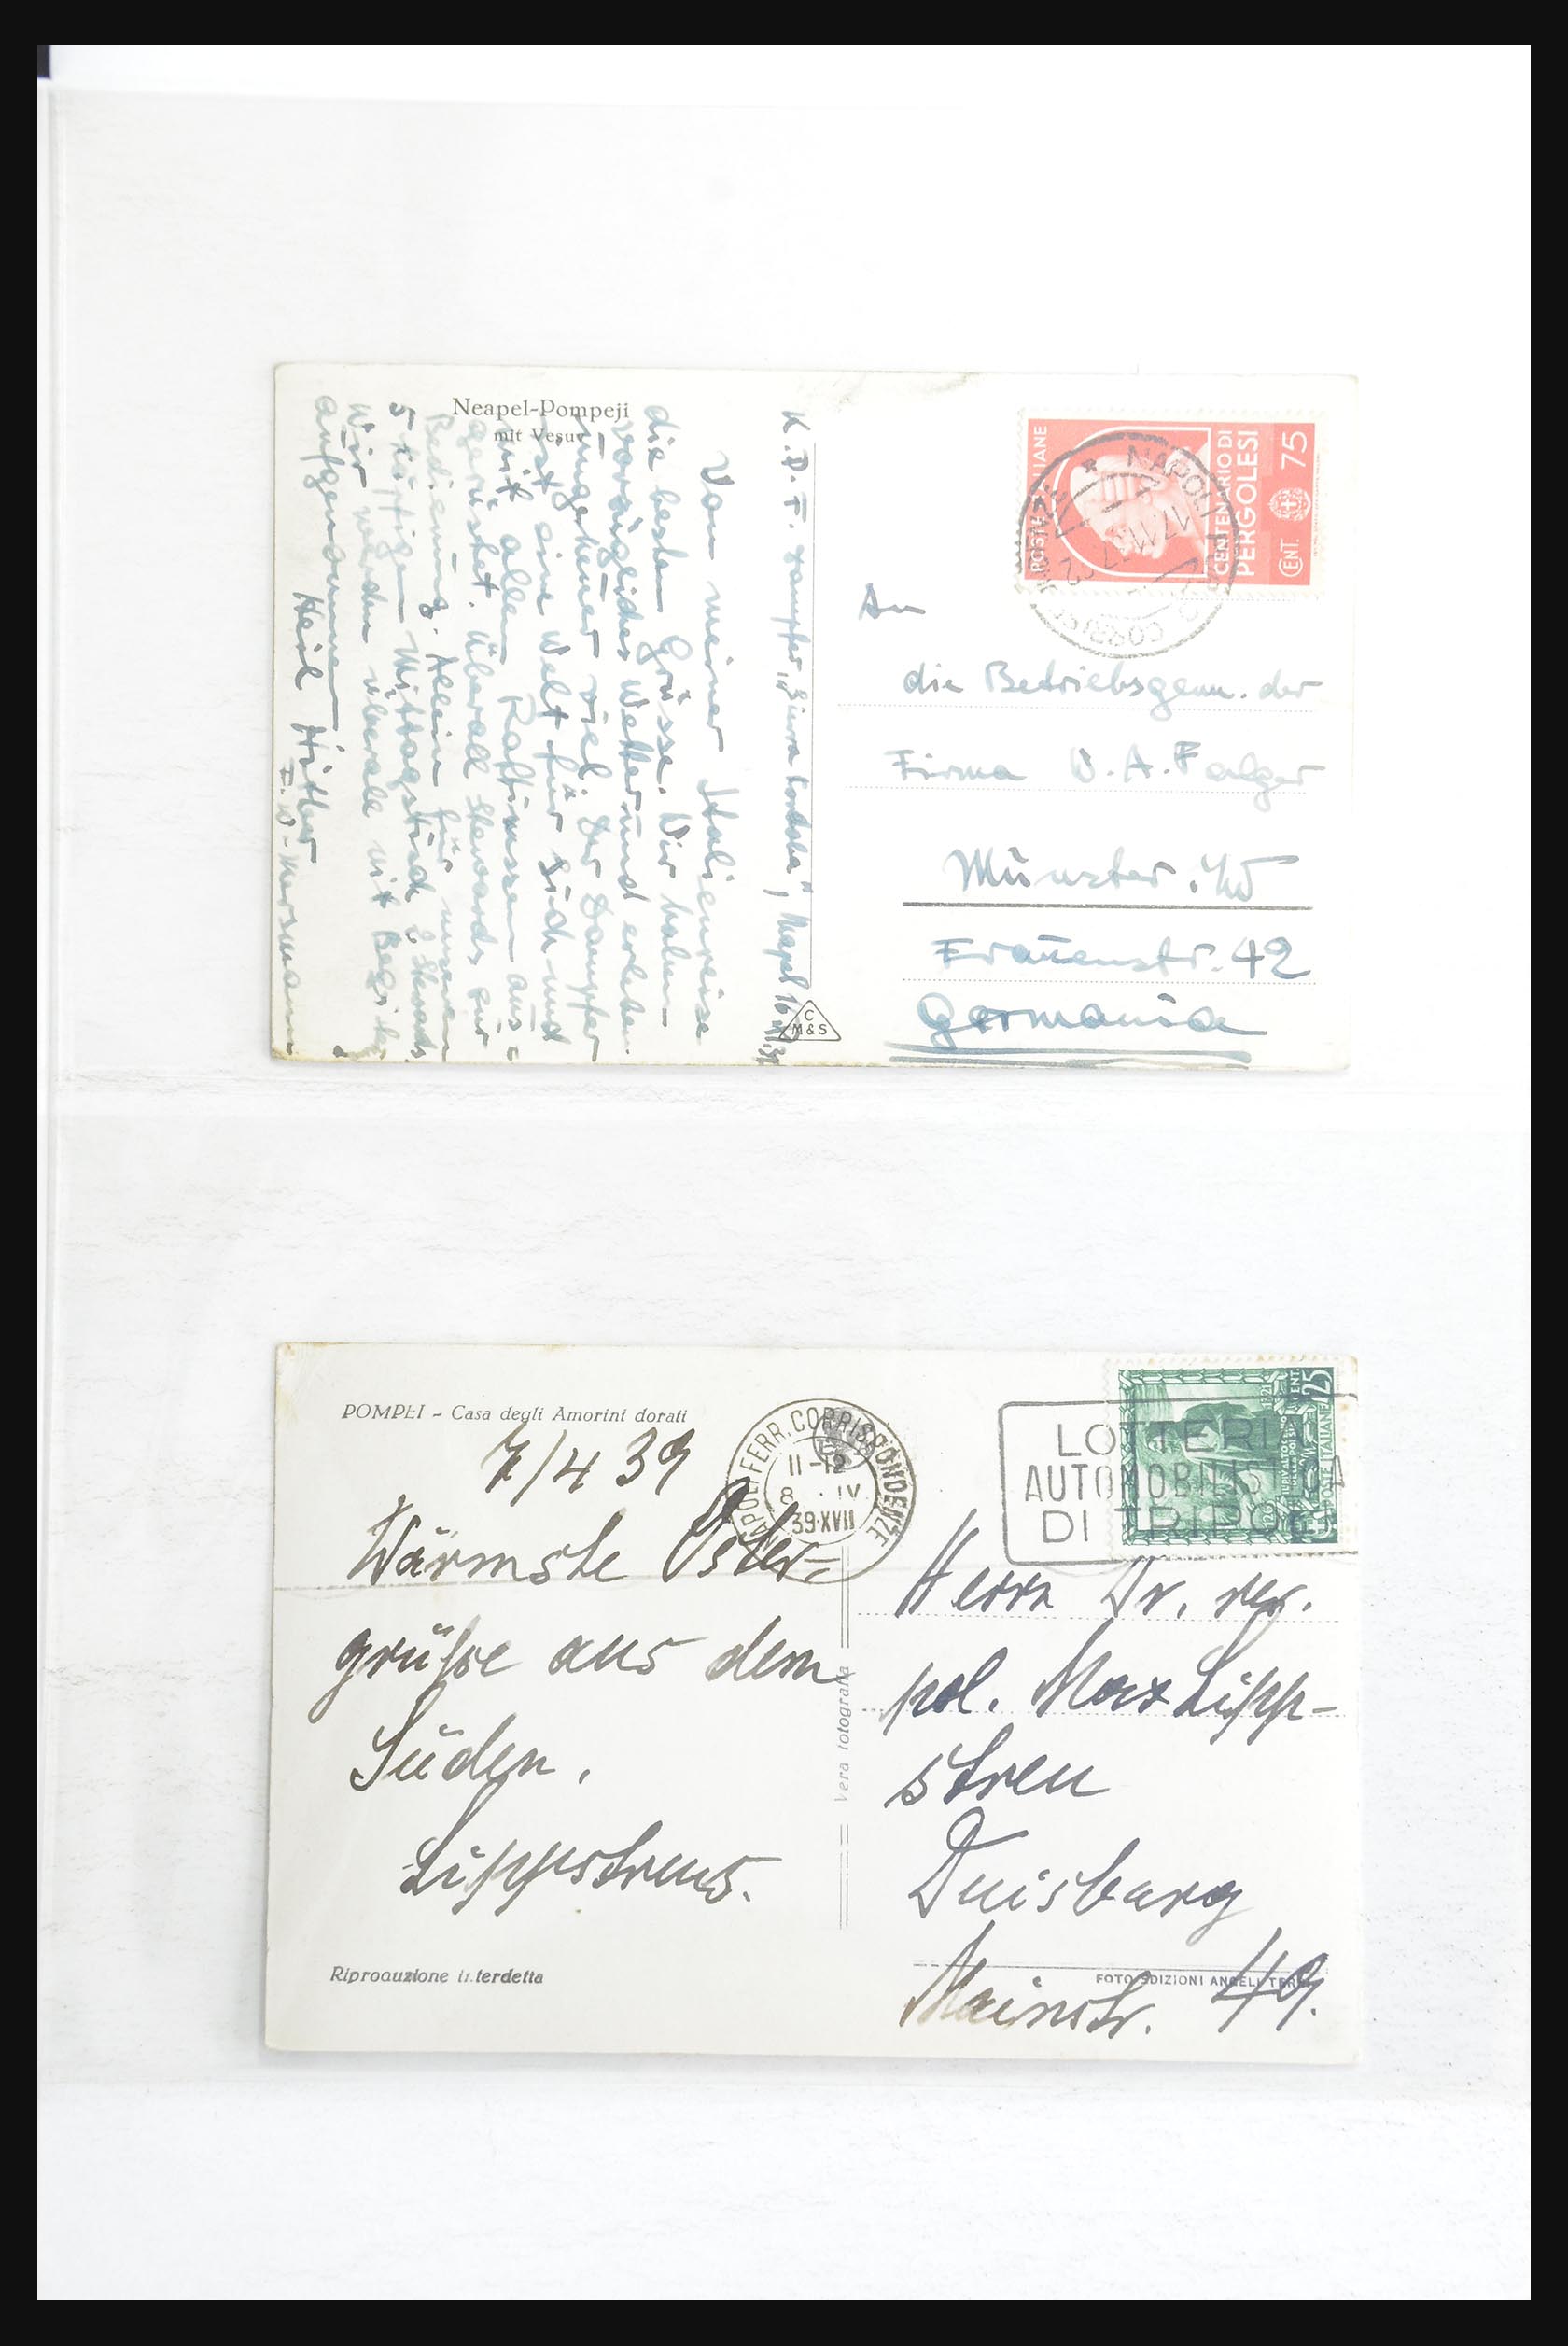 Neapel-Pompeji
mit Vesuv
K.D.F. Dampfer „Sierra Cordoba", Neapel 16.
Von meiner Italienreise
die besten Grüsse. Wir haben
vorzügliches Wetter und erleben
ungeheuer viel. Der Dampfer
ist eine Welt für sich und
mit allen Raffinessen aus=
gerüstet. Überall Stewards zur
Bedienung. Allein für unseren
5 köpfigen Mittagstisch 2 Stewards
Wir werden überall mit
aufgenommen
Heil Hitler
C
M&S
POSTE ITALIANE
CENTENARIO DI
PERGOLESI
CENT. 75
NAPOLI
17
An
die Betriebsgem. der
Firma W. A. Falger
Münster i/W
Frauenstr. 42
Germania
POMPEI - Casa degli Amorini dorati
7/4 39
Wärmste Oster=
grüße aus dem
Süden.
Lippstreus.
Riproduzione interdetta
Vera fotografia
NAPOLI FERR. CORRISPONDENZE
11-12
8 . IV
39·XVII
LOTTERIA
AUTOMOBILISTICA
DI TRIPOLI
CENT. 25
POSTE ITALIANE
Herrn Dr. rer.
pol. Max Lipp-
streu
Duisburg
Mainstr. 49.
FOTO EDIZIONI ANGELI TERNI